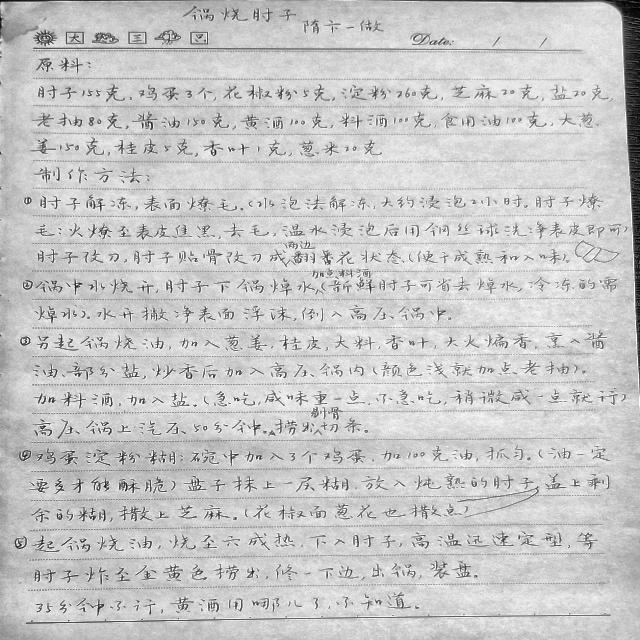 锅烧肘子 隋卞一做
大 三 Date: / /
原料:
肘子155克,鸡蛋3个,花椒粉5克,淀粉260克,芝麻20克,盐20克,
老抽80克,酱油150克,黄酒100克,料酒100克,食用油100克,大葱
姜150克,桂皮5克,香叶1克,葱米20克
制作方法:
①肘子解冻,表面燎毛。(水泡法解冻,大约浸泡2小时。肘子燎
毛:火燎至表皮焦黑,去毛,温水浸泡后用钢丝球洗净表皮即可)
两边
肘子改刀,肘子贴骨改刀成翻番花状态(便于成熟和入味)。
加点料酒
②锅中水烧开,肘子下锅焯水(新鲜肘子可省去焯水,冷冻的需
焯水)。水开撇净表面浮沫,倒入高压锅中。
③另起锅烧油,加入葱姜,桂皮,大料,香叶,大火煸香,烹入酱
油,部分盐,炒香后加入高压锅内(颜色浅就加点老抽)。
加料酒,加入盐。(急吃,咸味重一点,不急吃,稍微咸一点就行)
剔骨
高压锅上汽压50分钟。捞出切条。
④鸡蛋淀粉糊:碗中加入3个鸡蛋,加100克油,抓匀。(油一定
要多才能酥脆)盘子抹上一层糊,放入炖熟的肘子,盖上剩
余的糊,撒上芝麻。(花椒面葱花也撒点)
⑤起锅烧油,烧至六成热,下入肘子,高温迅速定型,等
肘子炸至金黄色捞出,修一下边,出锅,装盘。
35分钟不行,黄酒用哪儿了,不知道。